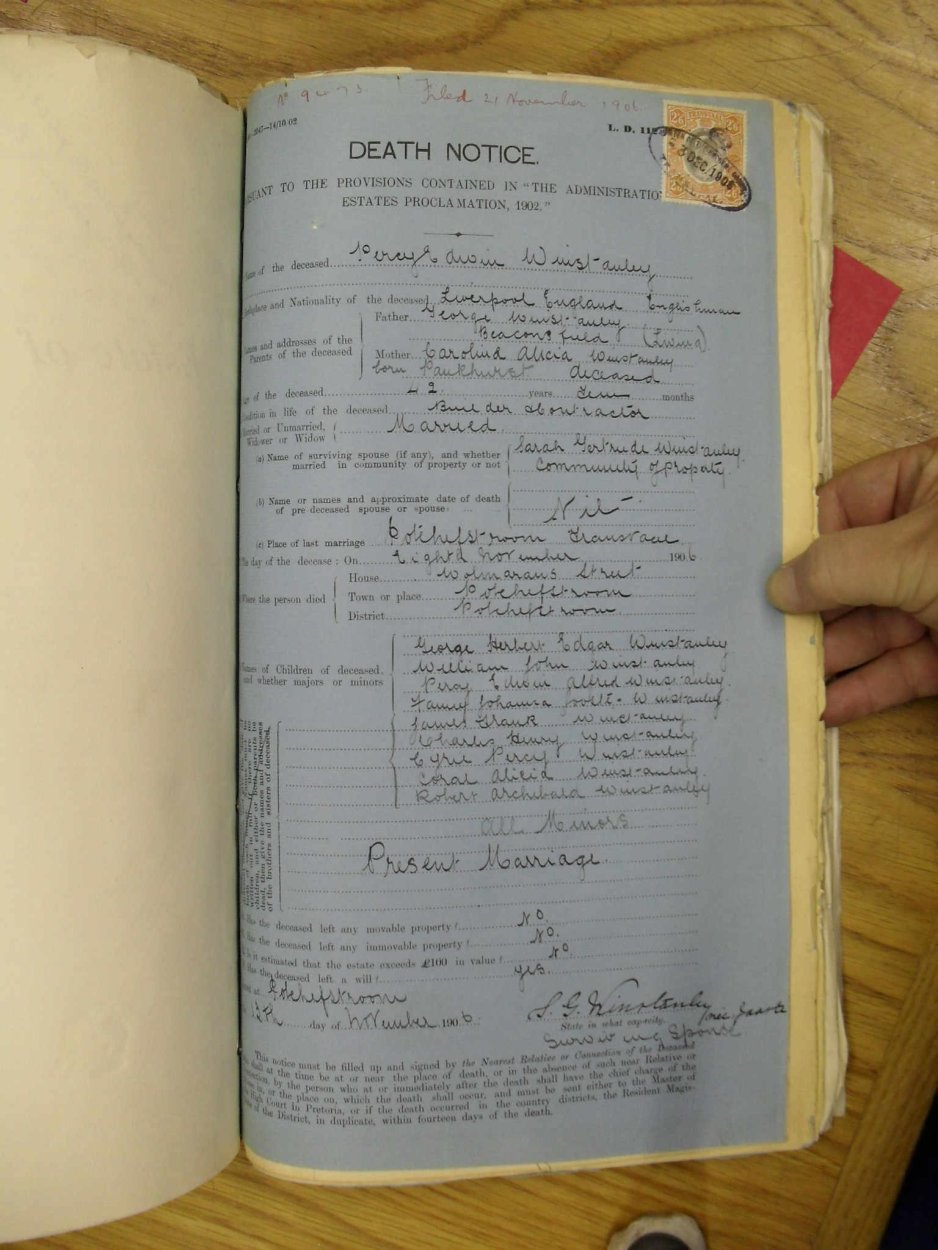 Filed 21 November 1906
14/10/02
L. D. 112
3 DEC. 1906
DEATH NOTICE.
TO THE PROVISIONS CONTAINED IN "THE ADMINISTRATIO
ESTATES PROCLAMATION, 1902."
of the deceased Percy Edwin Winstanley
and Nationality of the deceased Liverpool England Englishman
Father George Winstanley
Beaconsfield
and addresses of the
Parents of the deceased
Mother Carolina Alicia Winstanley
born deceased
of the deceased 42 years Ten months
in life of the deceased Builder & Contractor
or Unmarried, Married
Widower or Widow
(a) Name of surviving spouse (if any), and whether Sarah Gertrude Winstanley
married in community of property or not Community of Property
(b) Name or names and approximate date of death
of pre-deceased spouse or spouses Nil
(c) Place of last marriage Potchefstroom Transvaal
day of the decease: On Eight November 1906
House Wolmarans Street
Where the person died Town or place Potchefstroom
District Potchefstroom
Names of Children of deceased,
and whether majors or minors
George Herbert Edgar Winstanley
William John Winstanley
Percy Edwin Alfred Winstanley
Fanny Johanna Winstanley
James Frank Winstanley
Charles Henry Winstanley
Cyril Percy Winstanley
Coral Alicia Winstanley
Robert Archibald Winstanley
All Minors
Present Marriage
children, and either or both parents be
dead, then give the names and addresses
of the brothers and sisters of deceased.
Has the deceased left any movable property? No.
the deceased left any immovable property? No.
Is it estimated that the estate exceeds £100 in value? No.
Has the deceased left a will? yes.
at Potchefstroom
13th day of November 1906
S. G. Winstanley
State in what capacity.
Surviving Spouse
This notice must be filled up and signed by the Nearest Relative or Connection of the Deceased
shall at the time be at or near the place of death, or in the absence of such near Relative or
by the person who at or immediately after the death shall have the chief charge of the
in, or the place on, which the death shall occur, and must be sent either to the Master of
High Court in Pretoria, or if the death occurred in the country districts, the Resident Magis-
of the District, in duplicate, within fourteen days of the death.